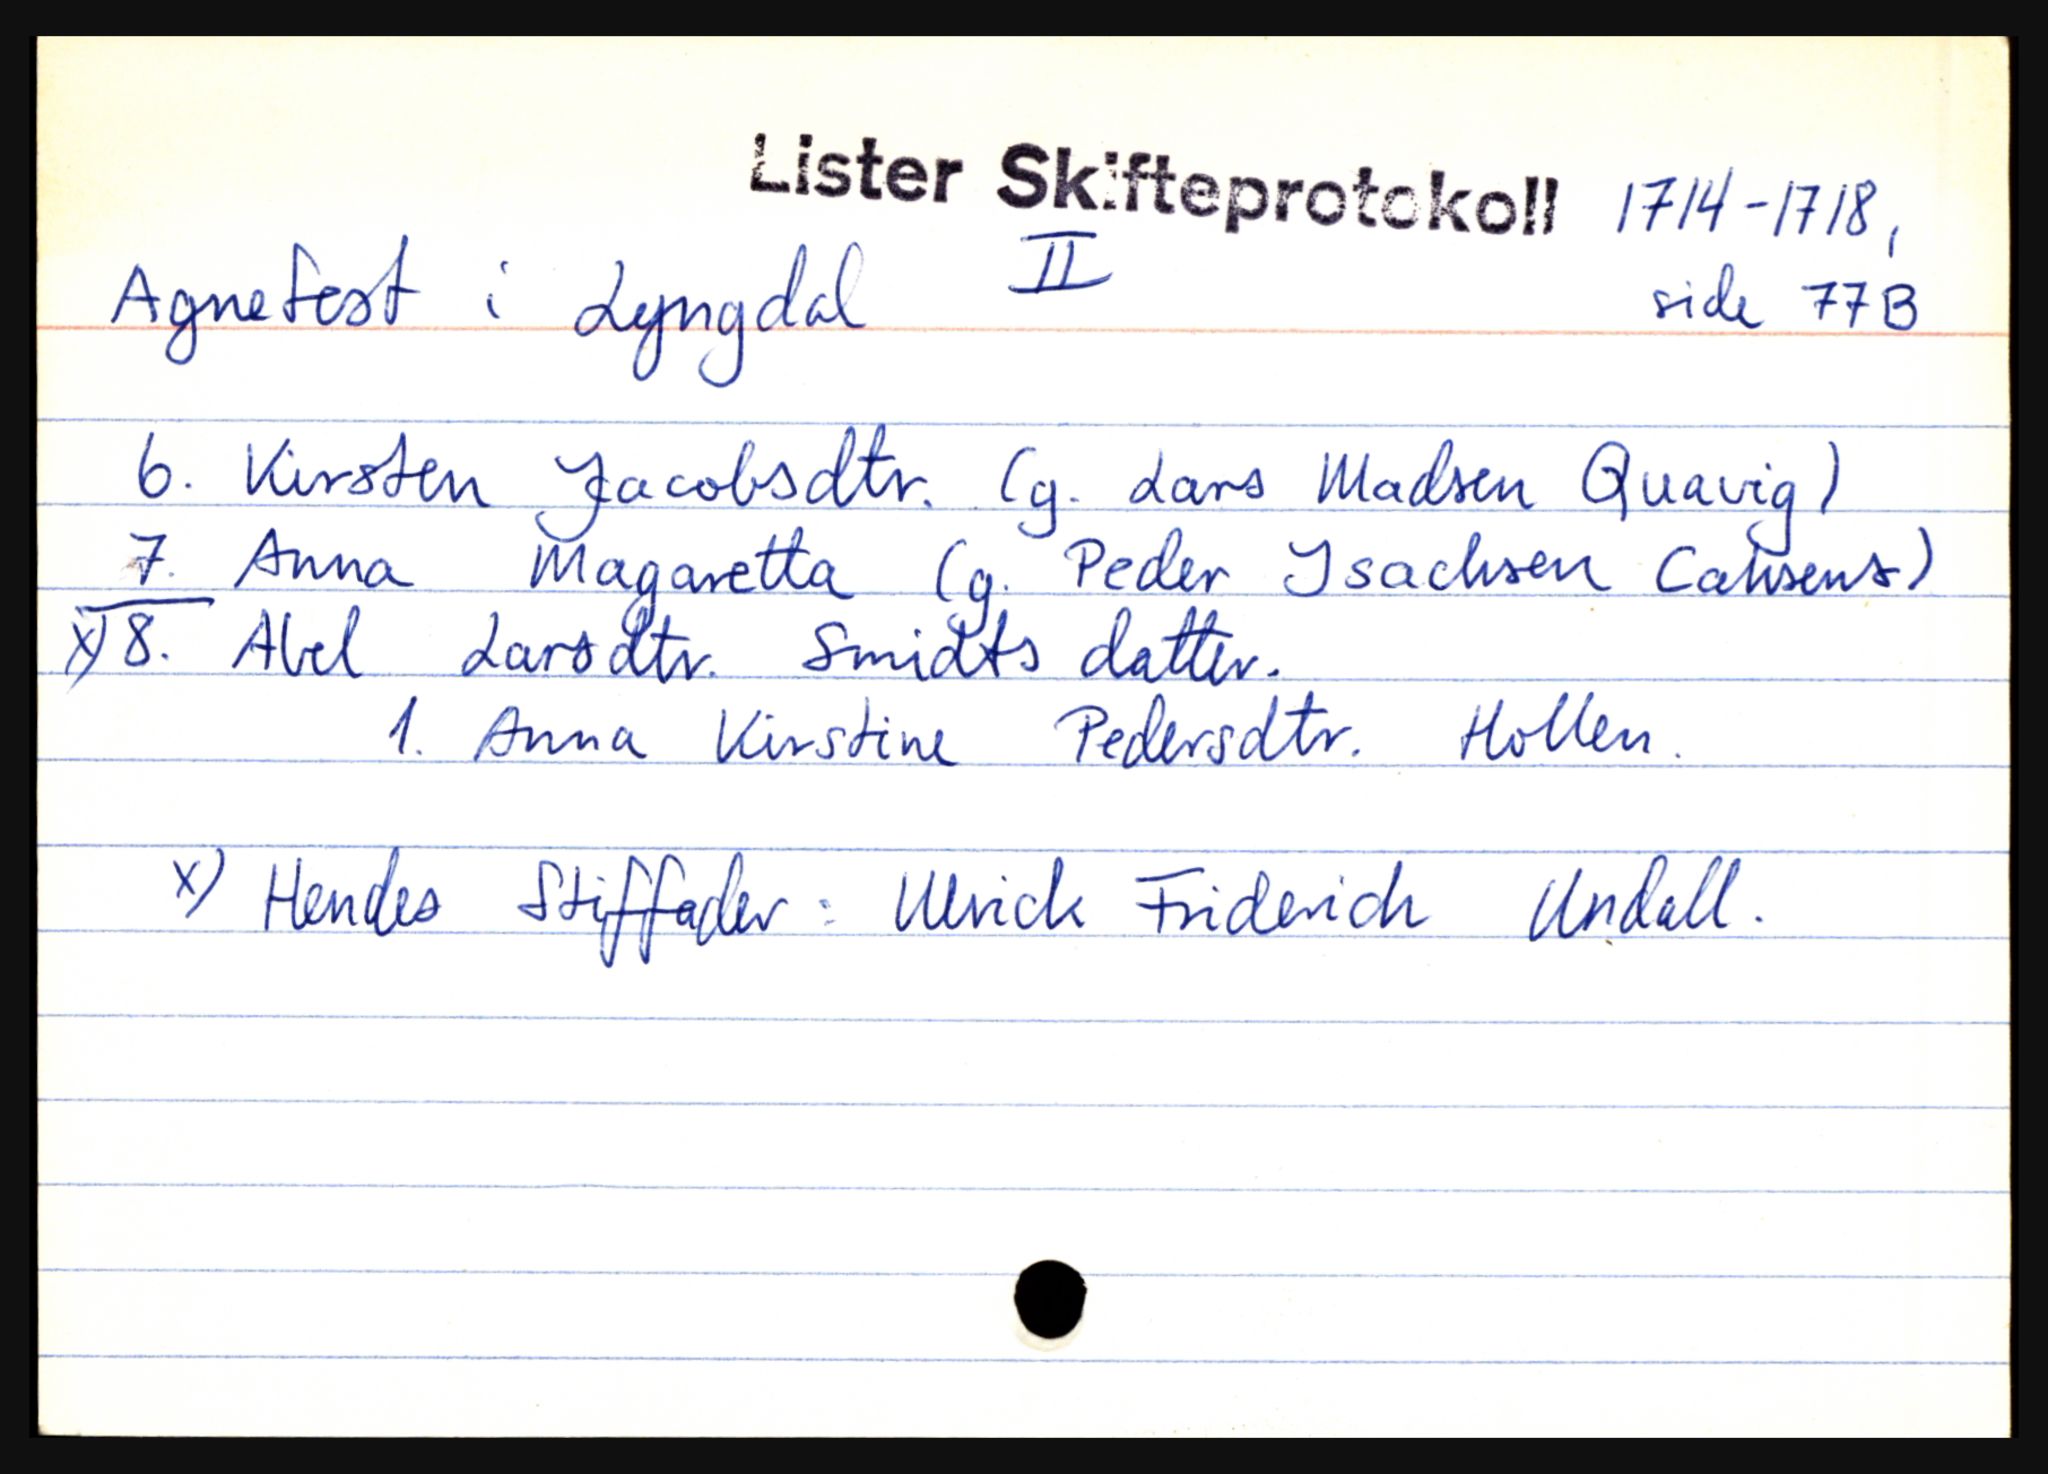 Lister Skifteprotokoll 1714-1718,
Agnefest i Lyngdal II side 77B
6. Kirsten Jacobsdtr. (g. Lars Madsen Quavig)
7. Anna Magaretta (g. Peder Isachsen Cahsens)
x) 8. Abel Larsdtr. Smidts datter.
1. Anna Kirstine Pedersdtr. Hollen.
x) Hendes Stiffader: Ulrick Friderich Undall.